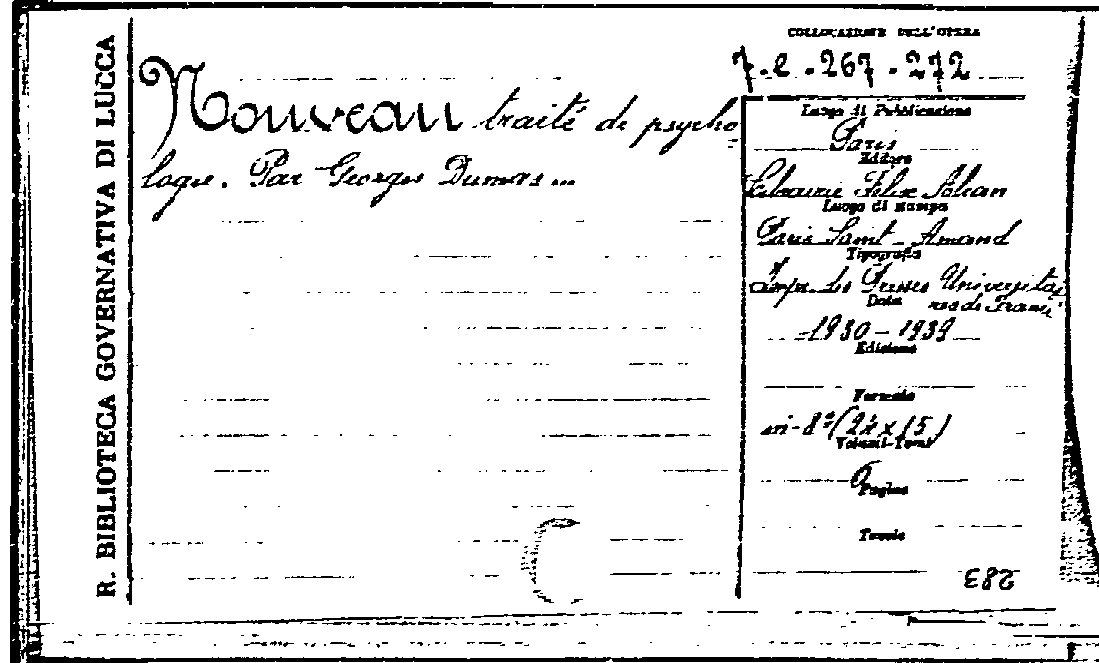 R. BIBLIOTECA GOVERNATIVA DI LUCCA
Nouveau traité de psycho
logie. Par Georges Dumas...
COLLOCAZIONE DELL'OPERA
7.e.267.272
Luogo di Pubblicazione
Paris
Editore
Librairie Félix Alcan
Luogo di stampa
Paris Saint-Amand
Tipografia
Imp. des Presses Universitai
Data
res de France
1930-1939
Edizione
Formato
in-8° (24x15)
Volumi-Tomi
6
Pagine
Tavole
283